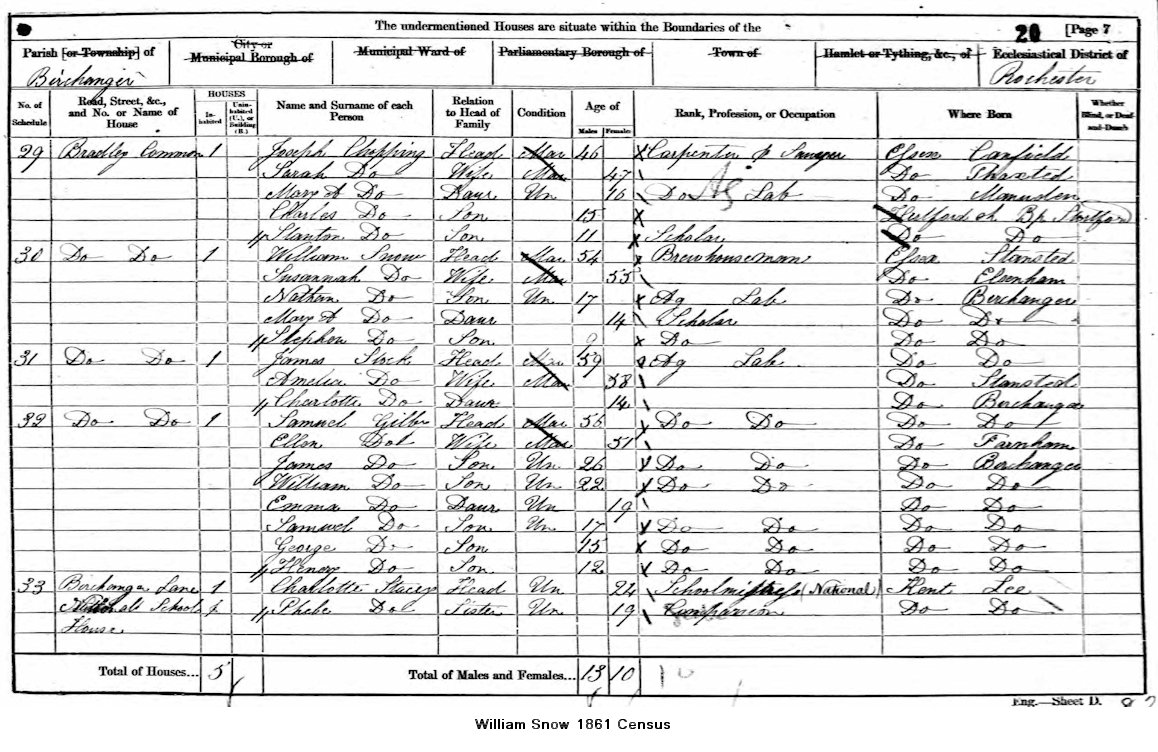 The undermentioned Houses are situate within the Boundaries of the
20 [Page 7
Parish [or Township] of City or Municipal Borough of Municipal Ward of Parliamentary Borough of Town of Hamlet or Tything, &c., of Ecclesiastical District of
Birchanger Rochester
No. of Schedule Road, Street, &c., and No. or Name of House HOUSES Inhabited Uninhabited (U.), or Building (B.) Name and Surname of each Person Relation to Head of Family Condition Age of Males Females Rank, Profession, or Occupation Where Born Whether Blind, or Deaf-and-Dumb
29 Bradley Common 1 Joseph Chipping Head Mar 46 x Carpenter & Essex Canfield
Sarah Do Wife Mar 47 Do Thaxted
Mary A Do Daur Un 16 Do Ag Lab Do Manuden
Charles Do Son 15 x Hertford sh Bp Stortford
Stanton Do Son 11 x Scholar Do Do
30 Do Do 1 William Snow Head Mar 54 x Brewhouseman Essex Stansted
Susannah Do Wife Mar 55 Do Elsenham
Nathan Do Son Un 17 x Ag Lab Do Birchanger
Mary A Do Daur 14 Scholar Do Do
Stephen Do Son 9 x Do Do Do
31 Do Do 1 James Stock Head Mar 59 Ag Lab Do Do
Amelia Do Wife Mar 58 Do Stansted
Charlotte Do Daur 14 Do Birchanger
32 Do Do 1 Samuel Head Mar 56 Do Do Do Do
Ellen Do Wife Mar 51 Do Farnham
James Do Son Un 26 Do Do Do Birchanger
William Do Son Un 22 Do Do Do Do
Emma Do Daur Un 19 Do Do
Samuel Do Son Un 17 Do Do Do Do
George Do Son 15 x Do Do Do Do
Henery Do Son 12 Do Do Do Do
33 Birchanger Lane 1 Charlotte Stacey Head Un 24 Schoolmistress (National) Kent Lee
National School Phebe Do Sister Un 19 Companion Do Do
House
Total of Houses... 5 Total of Males and Females... 13 10
Eng.—Sheet D.
William Snow 1861 Census